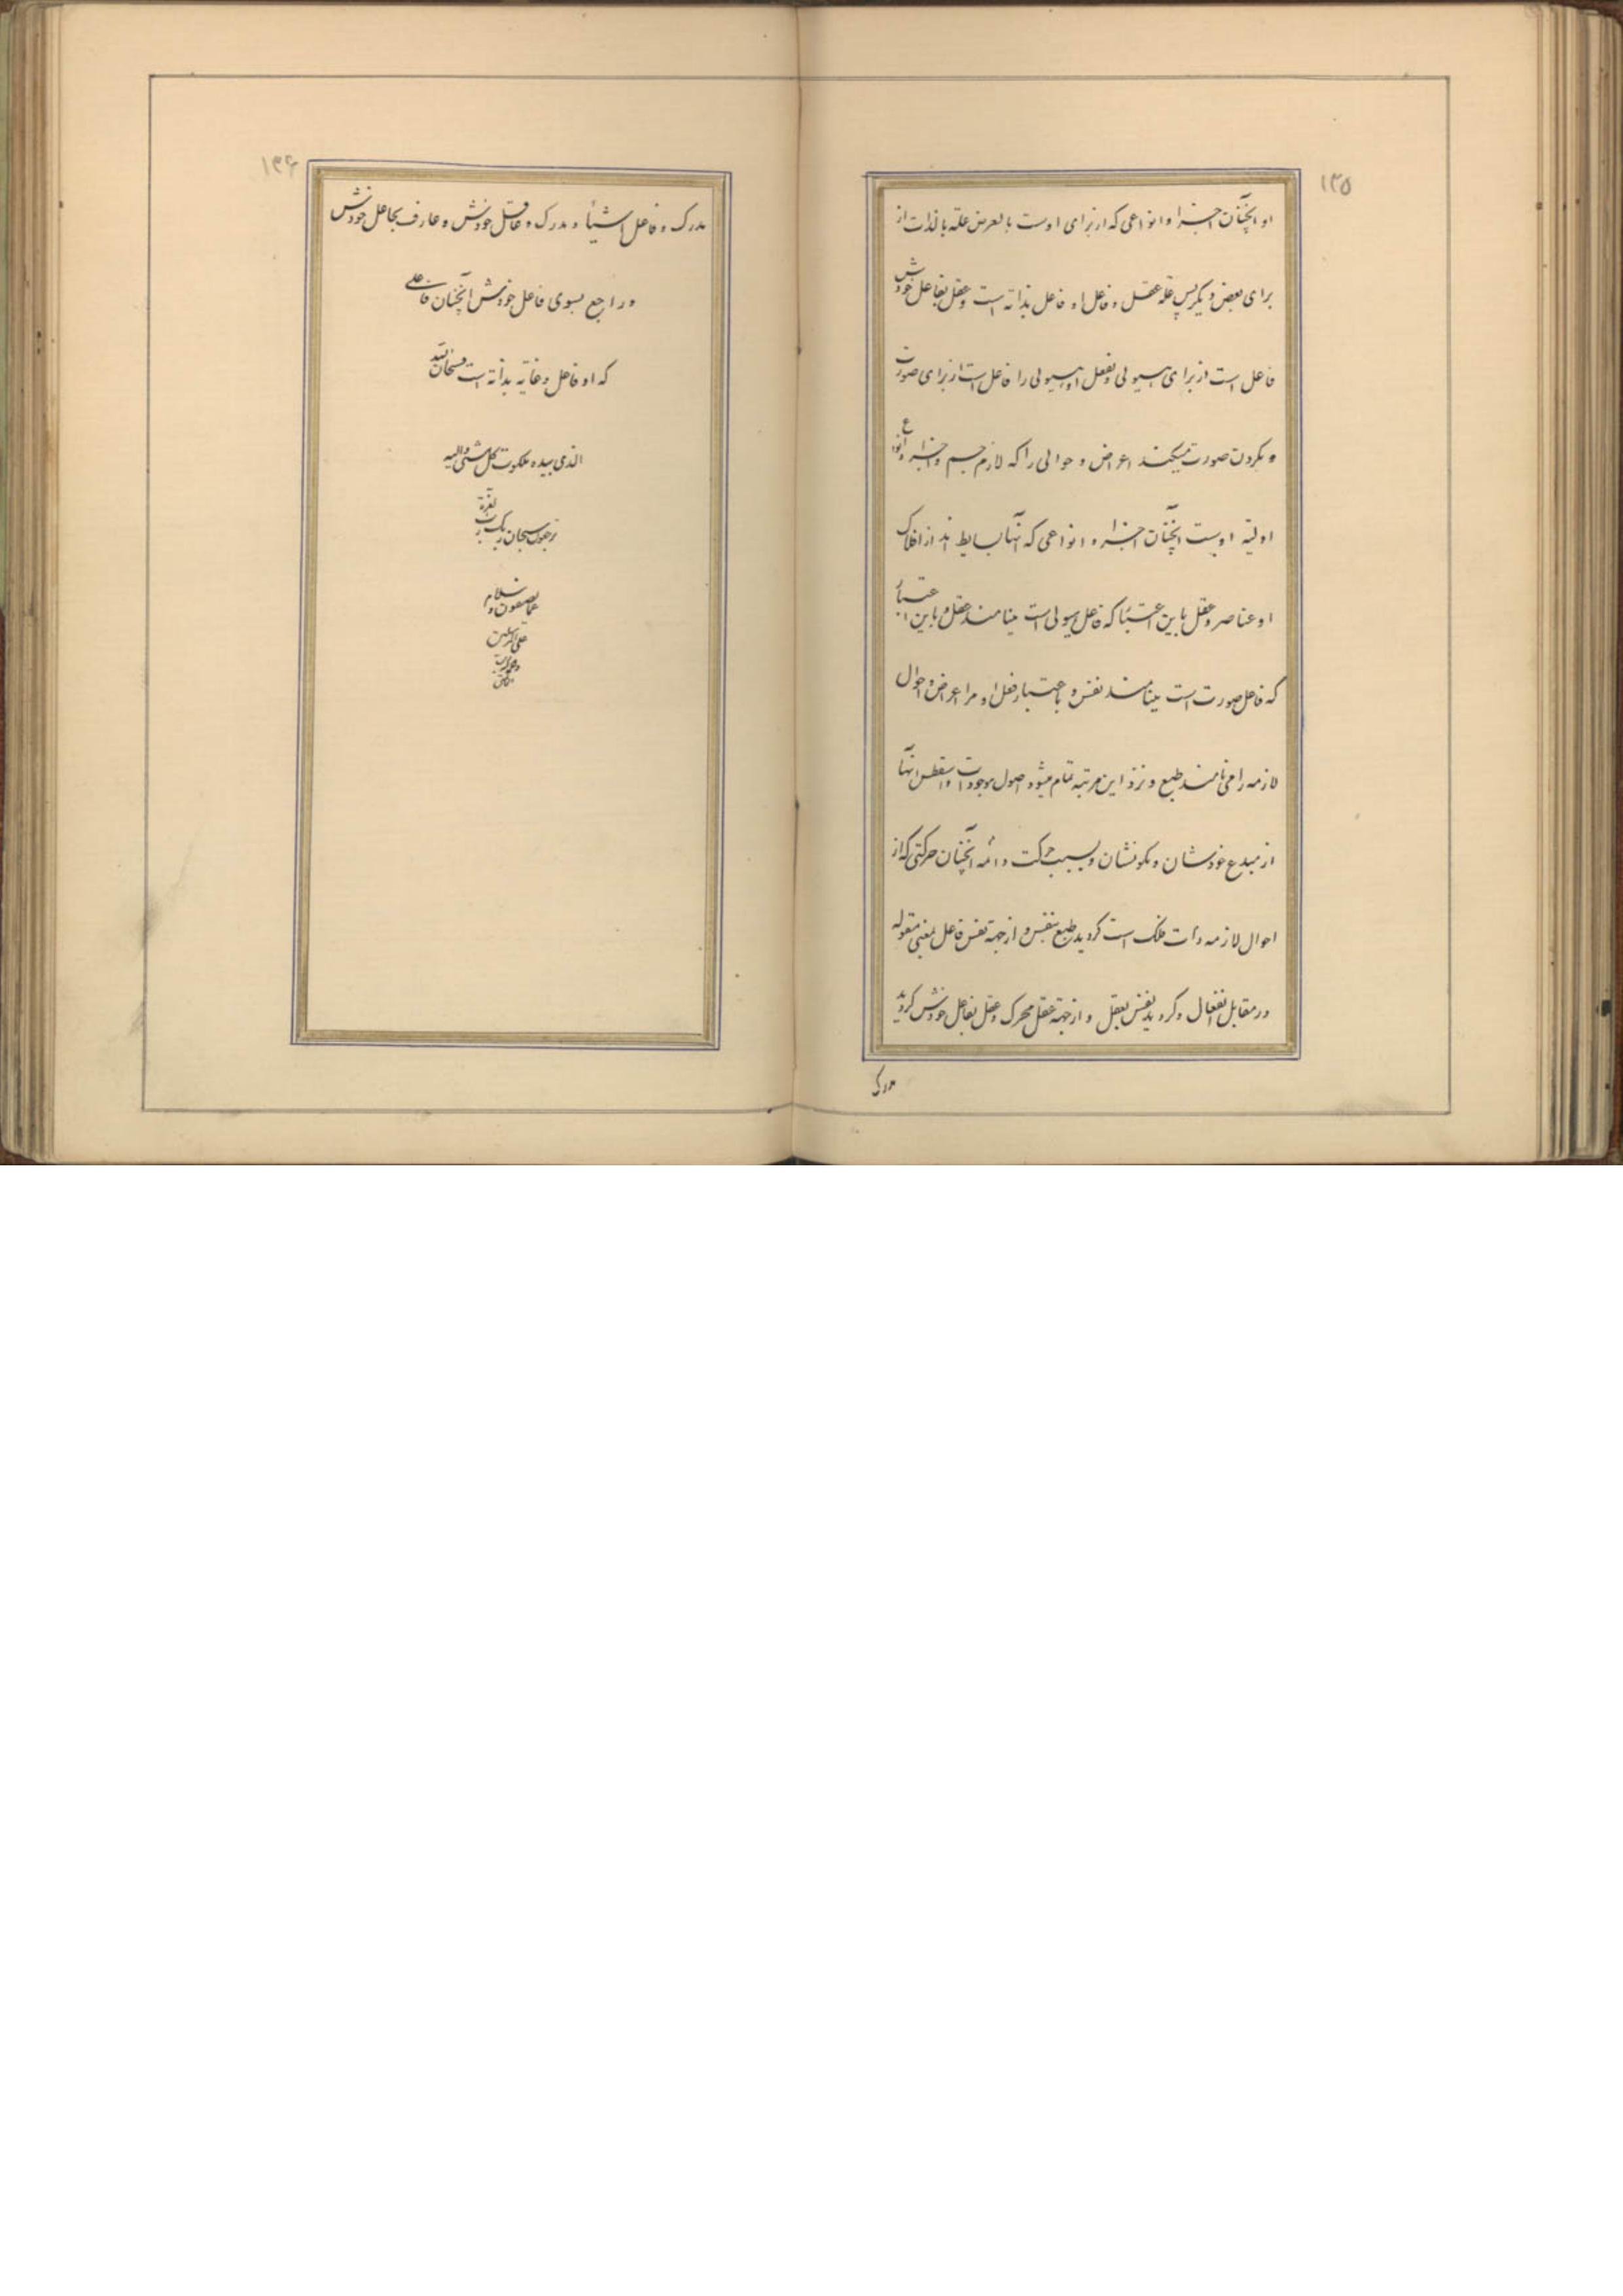 ۱۳۵
او آنچنان اجزا و انواعی که از برای اوست بالعرض علة بالذات از
برای بعض دیگر پس علة عقل و فاعل او فاعل بذاته است و عقل بفاعل خودش
فاعل است از برای هیولی و بفعل او هیولی را فاعل است از برای صورت
و بکردن صورت میکند اعراض و احوالی را که لازم جسم و اجزاء و انواع
اولیه اوست آنچنان اجزاء و انواعی که آنها بسایط اند از افلاک
او عناصر و عقل باین اعتبار که فاعل هیولی است مینامند عقل و باین اعتبار
که فاعل صورت است مینامند نفس و باعتبار فعل او مر اعراض و احوال
لازمه را می نامند طبع و نزد این مرتبه تمام میشود اصول موجودات و اسطقس آنها
از مبدع خودشان و مکونشان و بسبب حرکت دائمه آنچنان حرکتی که از
احوال لازمه ذات فلک است کردید طبع بنفس و از جهة نفس فاعل بمعنی مقوله
در مقابل انفعال و کردید نفس بعقل و از جهة عقل محرک و عقل بفاعل خودش کردید
مدرک
۱۳۶
مدرک و فاعل اشیاء و مدرک و عاقل خودش و عارف بجاعل خودش
و راجع بسوی فاعل خودش آنچنان فاعلی
که او فاعل و غایة بذاته است فسبحان الله
الذی بیده ملکوت کل شئی والیه
ترجعون سبحان ربک رب العزة
عما یصفون وسلام
علی المرسلین
والحمد لله رب
العالمین